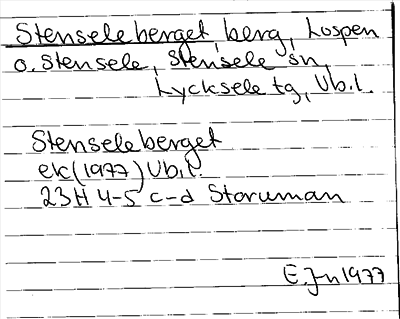 Stenseleberget, berg, Lospen
o. Stensele, Stensele sn,
Lycksele tg, Vb.l.
Stenseleberget
ek (1977) Vb.l.
23H 4-5 c-d Storuman
E. Jn 1977